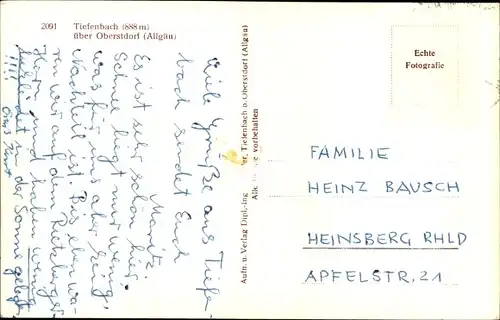 2091 Tiefenbach (888 m)
über Oberstdorf (Allgäu)
Viele Grüße aus Tiefen-
bach sendet Euch
Moritz.
Es ist sehr schön hier.
Schnee liegt nur wenig,
was für uns aber kein
Nachteil ist. Bis eben wa-
ren wir auf den
Hörn und haben wenig
in der Sonne gelegen
!!!!
Aufn. u. Verlag Dipl.-Ing. Tiefenbach b. Oberstdorf (Allgäu)
Alle vorbehalten
Echte
Fotografie
FAMILIE
HEINZ BAUSCH
HEINSBERG RHLD
APFELSTR. 21